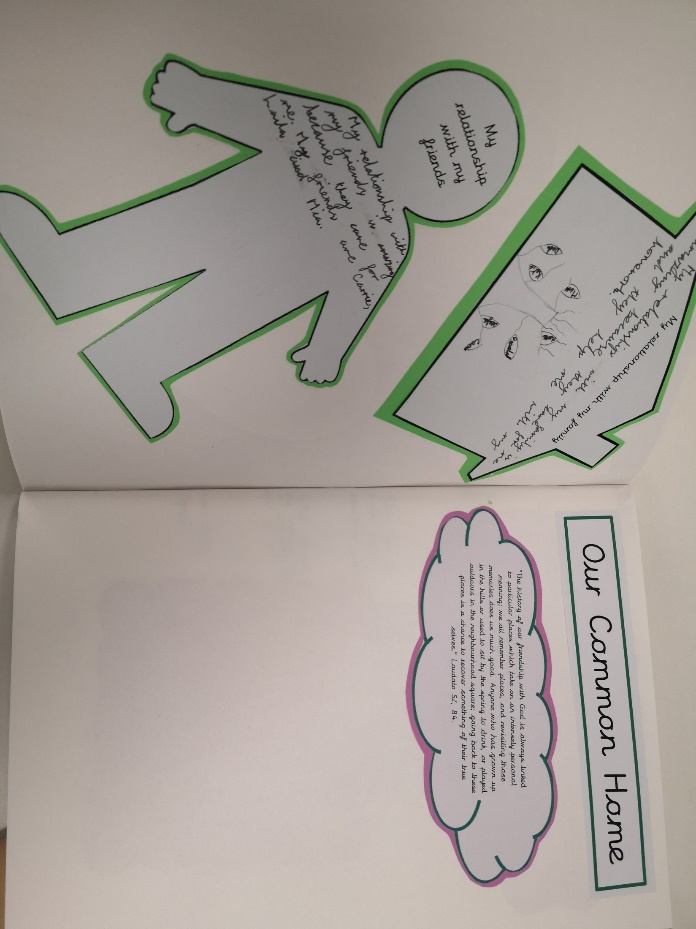 My
relationship
with my
friends
My relationship with
my friends is amazing
because they care for
me. My friends are Carrie,
Laila and Mia.
My relationship with my family
My relationship with my family is
amazing because they
and they help me with my
homework
Our Common Home
"The history of our friendship with God is always linked
to particular places which take on an intensely personal
meaning; we all remember places, and revisiting those
memories does us much good. Anyone who has grown up
in the hills or used to sit by the spring to drink, or played
outdoors in the neighbourhood square; going back to these
places is a chance to recover something of their true
selves." Laudato Si', 84.